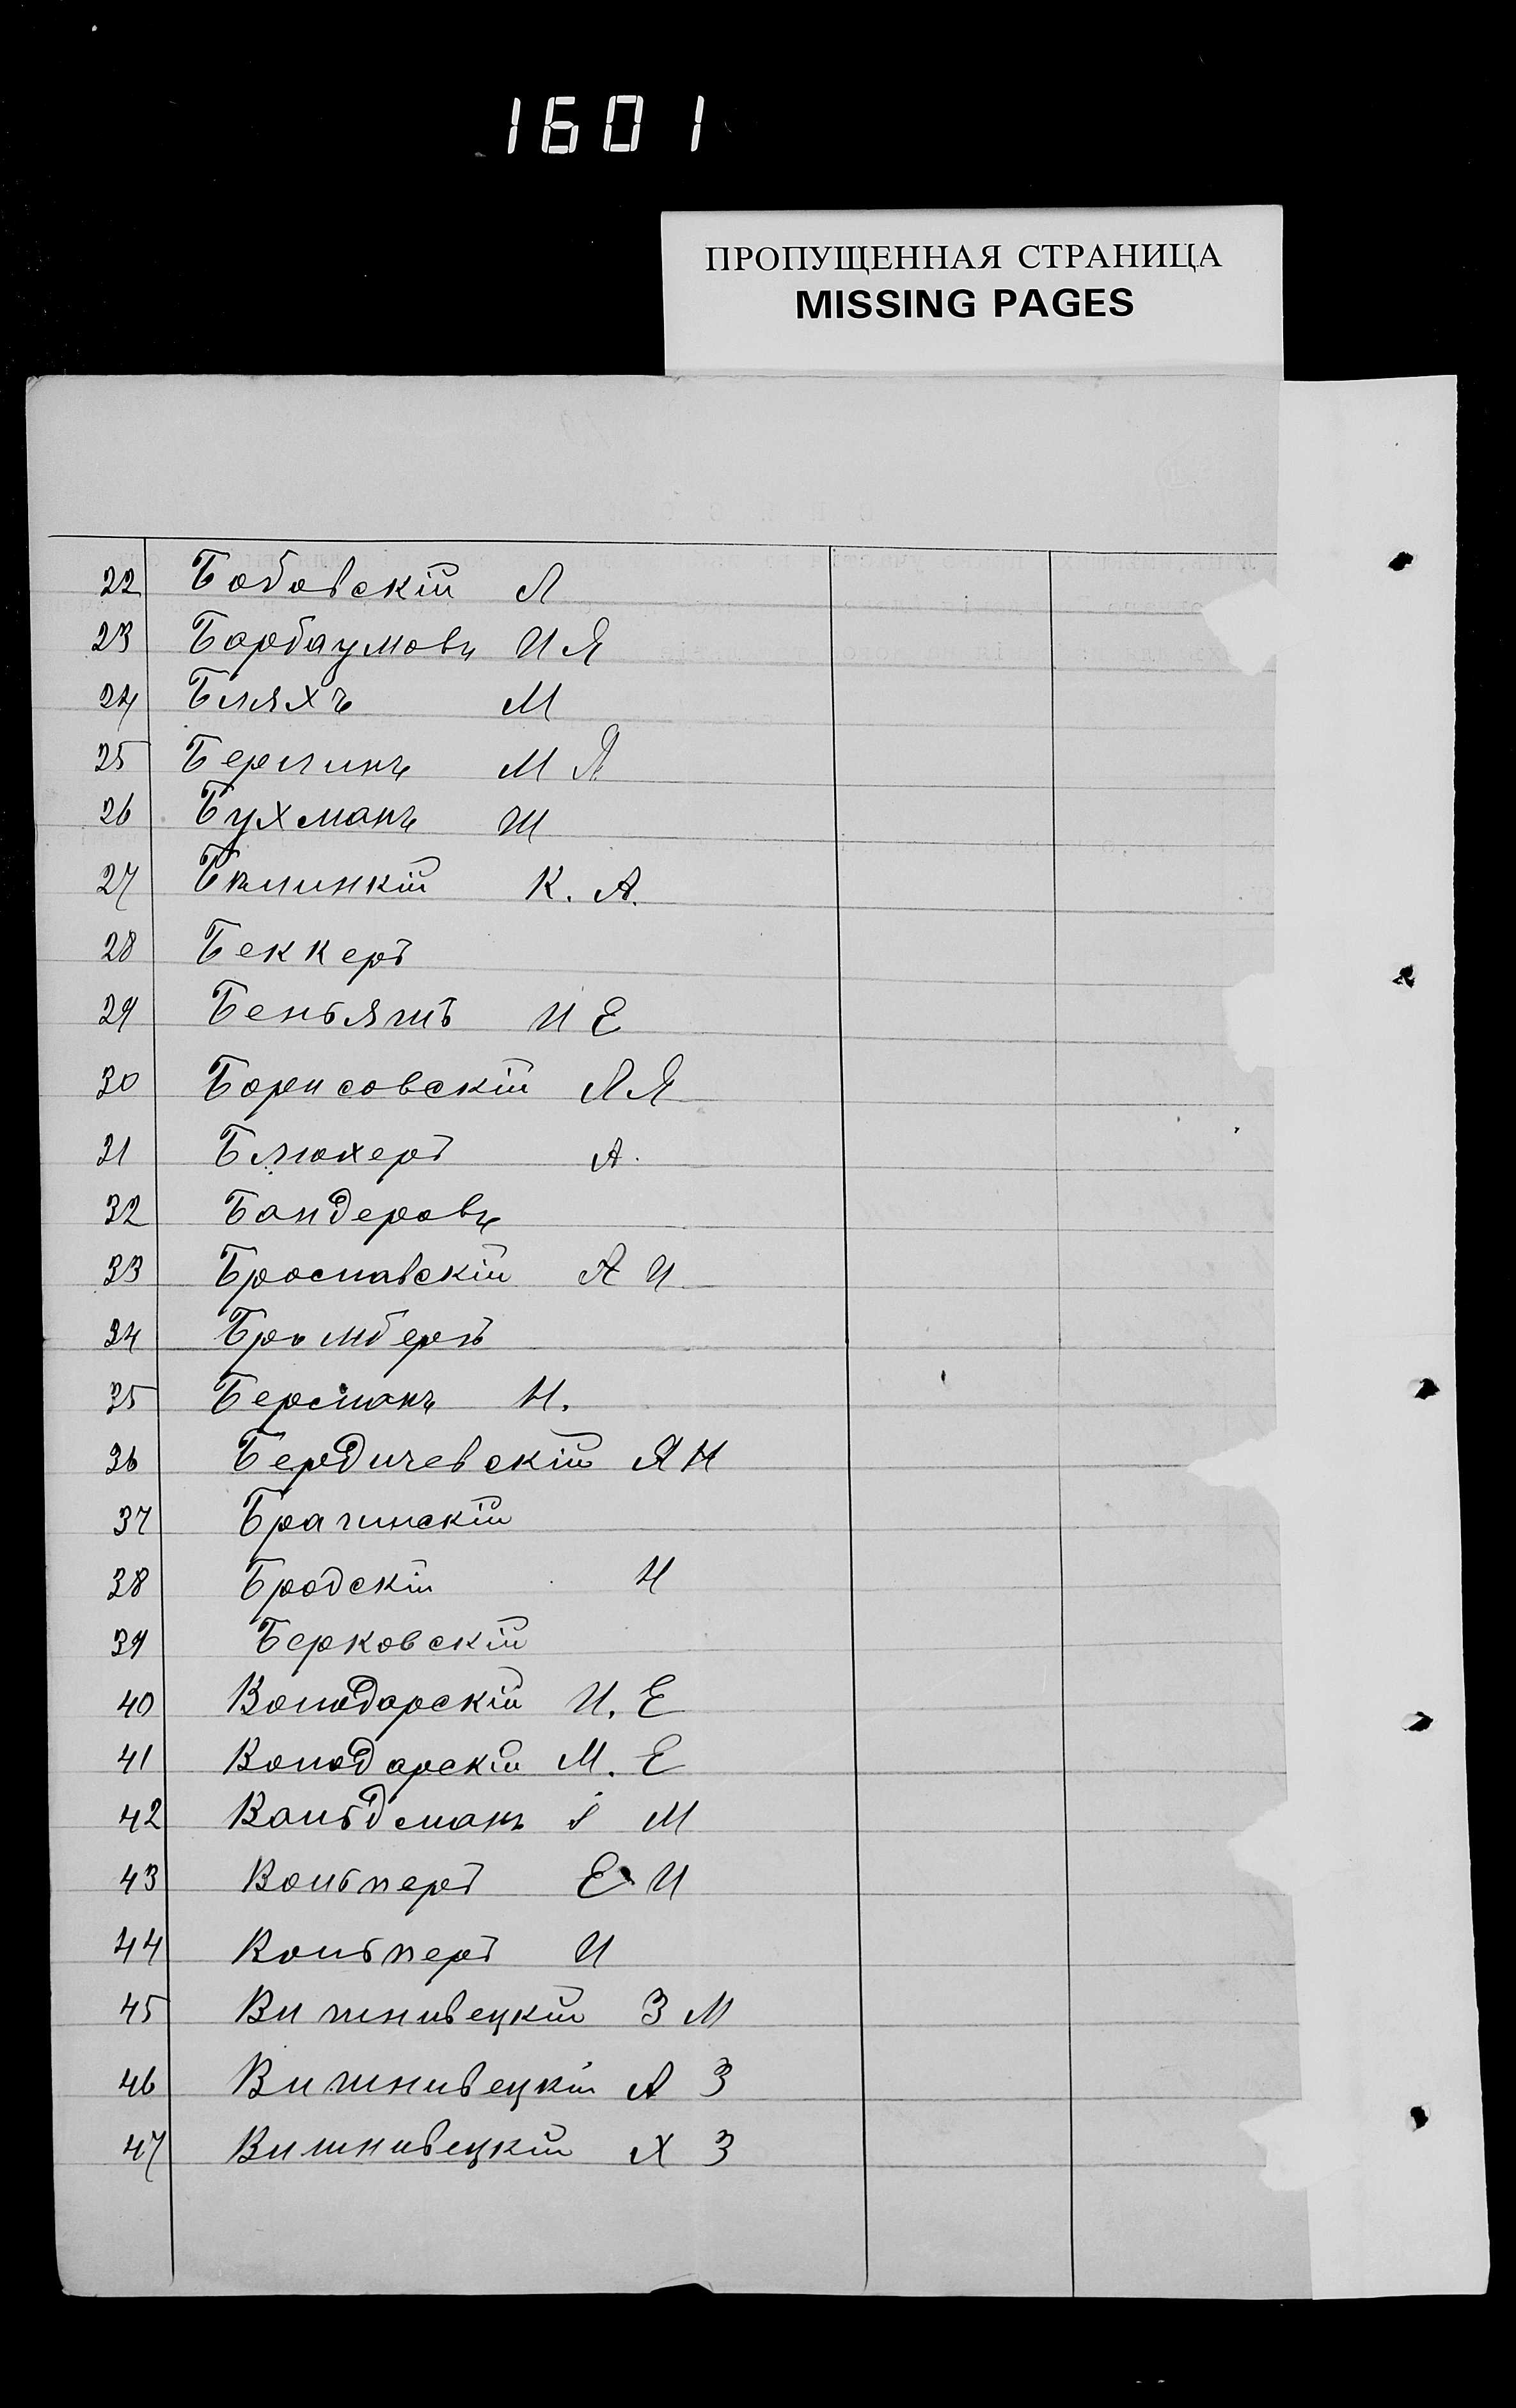 1601
ПРОПУЩЕННАЯ СТРАНИЦА
MISSING PAGES
22 Бобовскій Л
23 Барбаумовъ И Я
24 Бляхъ М
25 Берлинъ М Я
26 Бухманъ Ш
27 Бялинкій К. А.
28 Беккеръ
29 Беньяшъ И Е
30 Борисовскій Л Я
31 Блюхеръ А.
32 Бандеровъ
33 Брославскій А И
34 Бромбергъ
35 Берманъ Н.
36 Бердичевскій Я Н
37 Брагинскій
38 Бродскій Н
39 Берковскій
40 Володарскій И. Е
41 Володарскій М. Е
42 Вальдманъ М
43 Вольперъ Е И
44 Вольперъ И
45 Вишнивецкій З М
46 Вишнивецкій А З
47 Вишнивецкій Х З